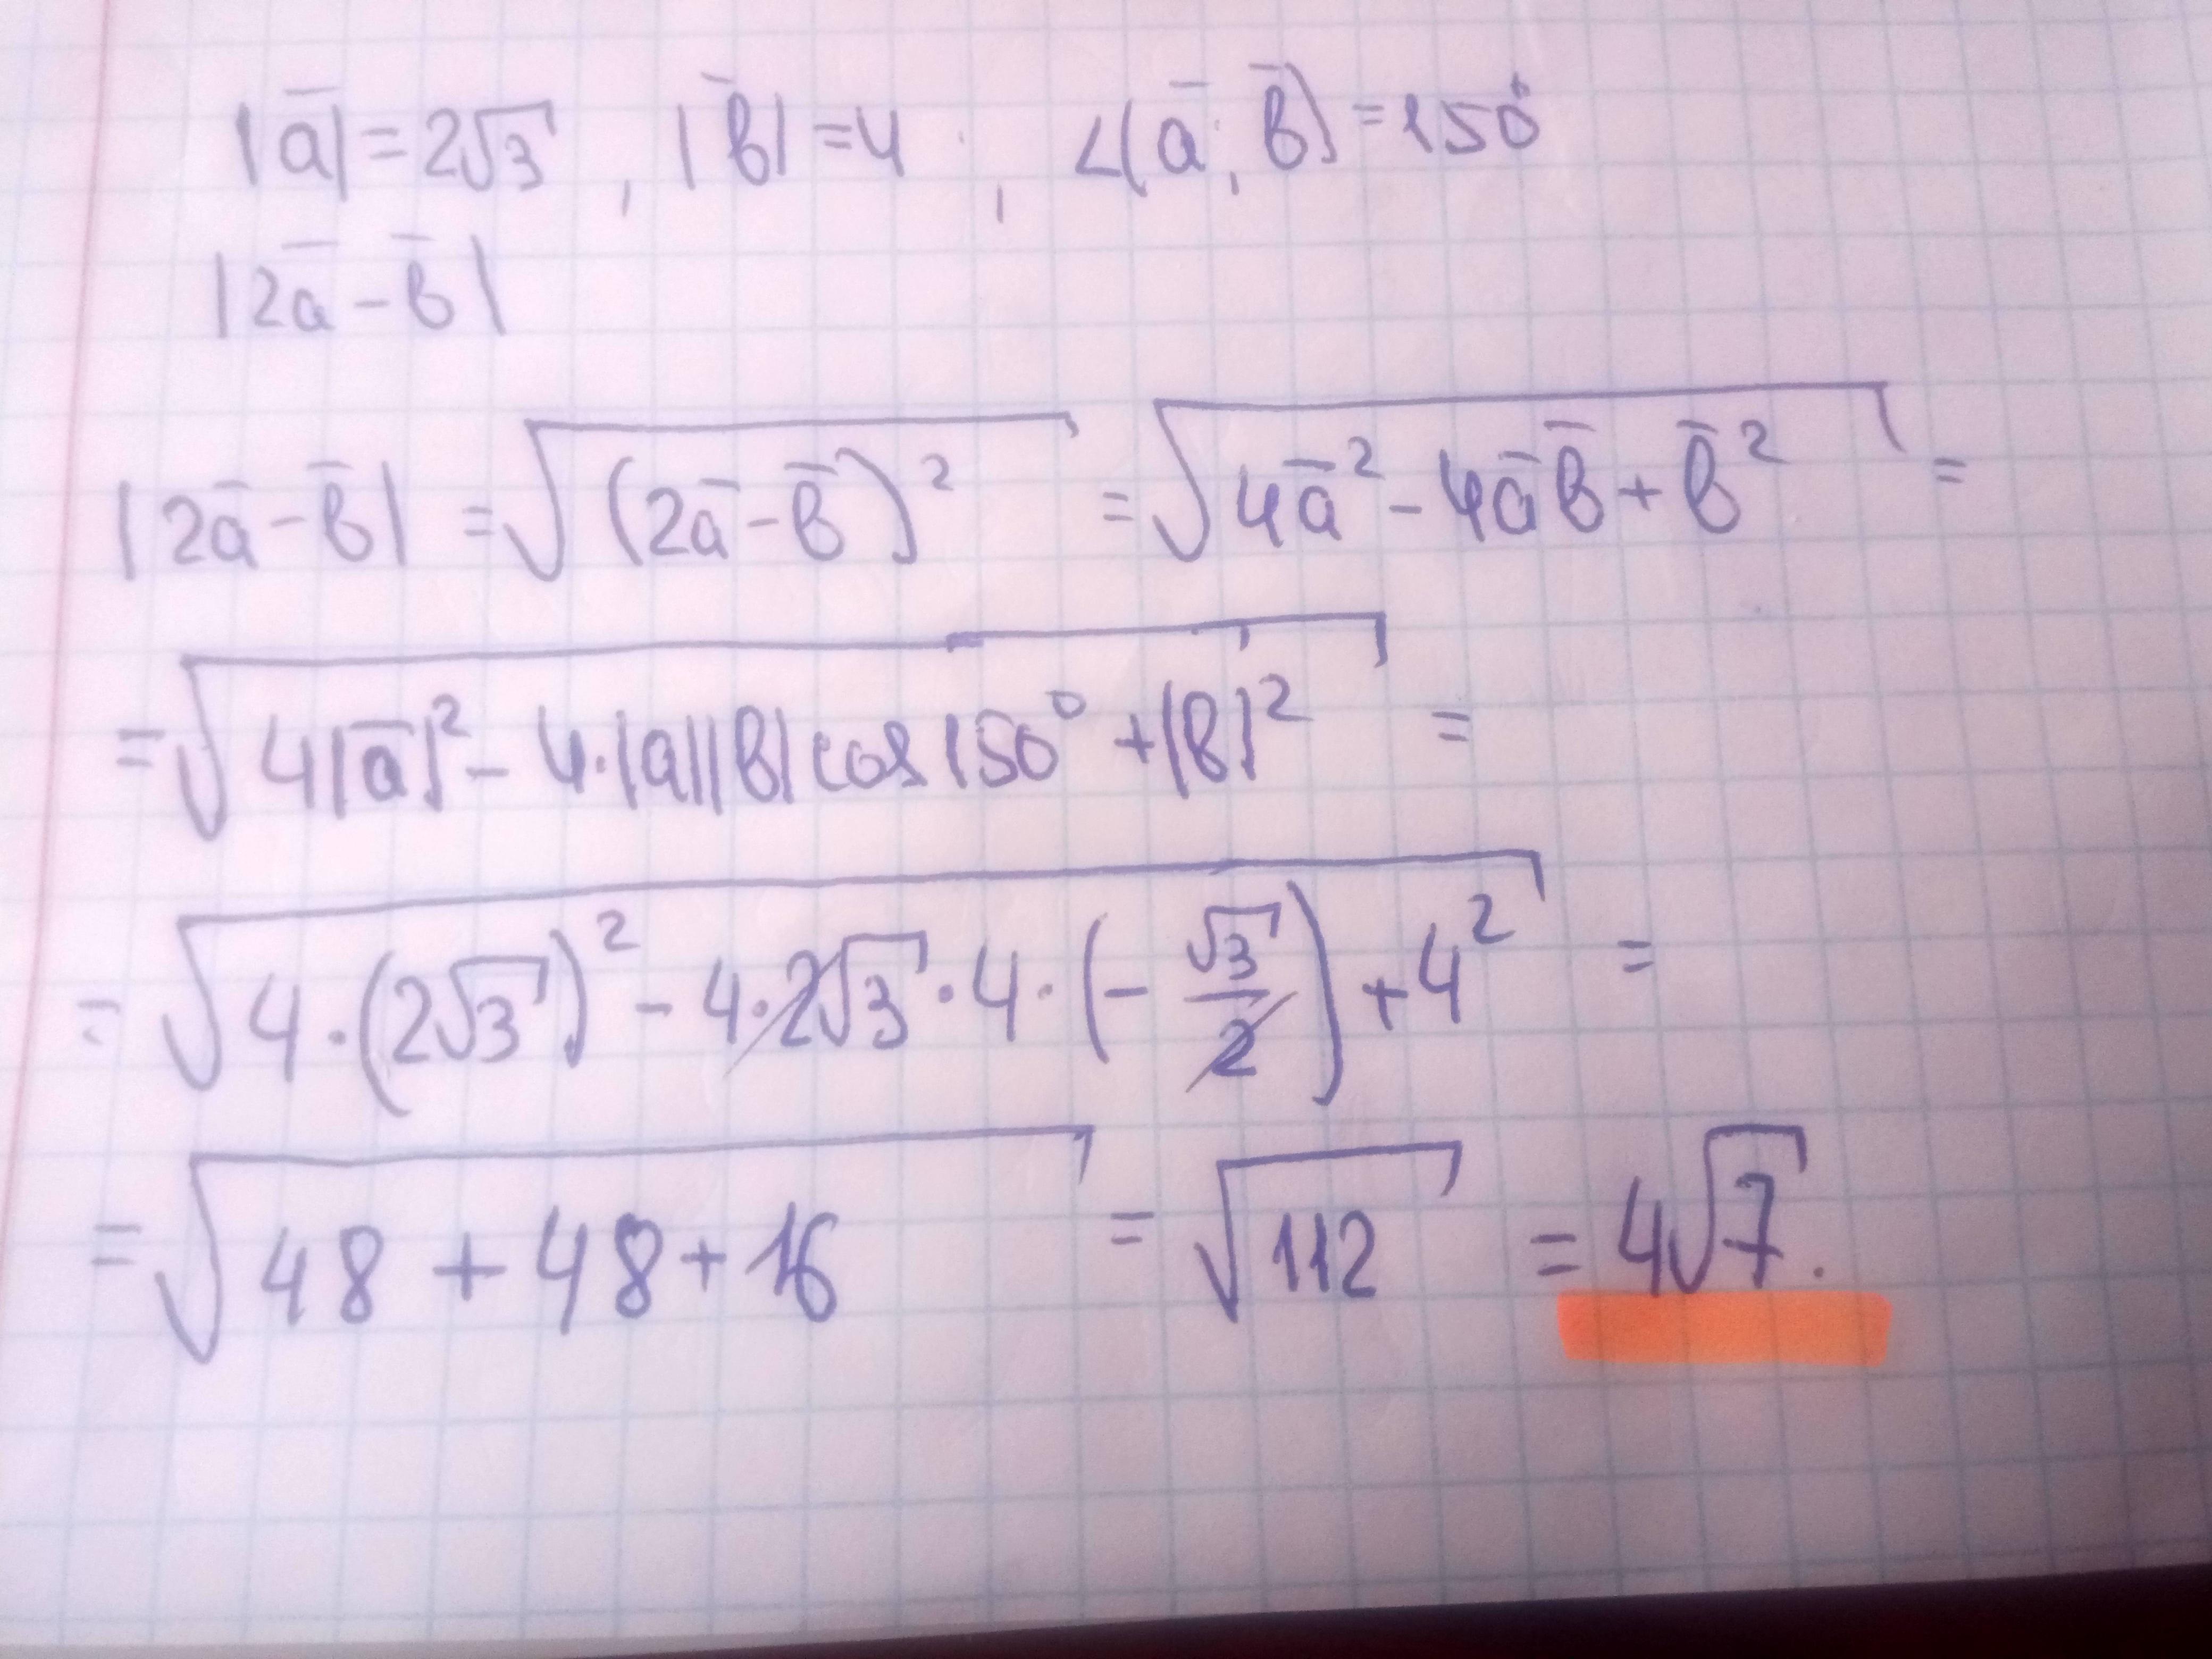 |a̅| = 2√3 , |b̅| = 4 , ∠(a̅, b̅) = 150°
|2a̅ - b̅|
|2a̅ - b̅| = √((2a̅ - b̅)²) = √(4a̅² - 4a̅b̅ + b̅²) =
= √(4|a̅|² - 4·|a||b| cos 150° + |b|²) =
= √(4·(2√3)² - 4·2√3·4·(-√3/2) + 4²) =
= √(48 + 48 + 16) = √112 = 4√7.